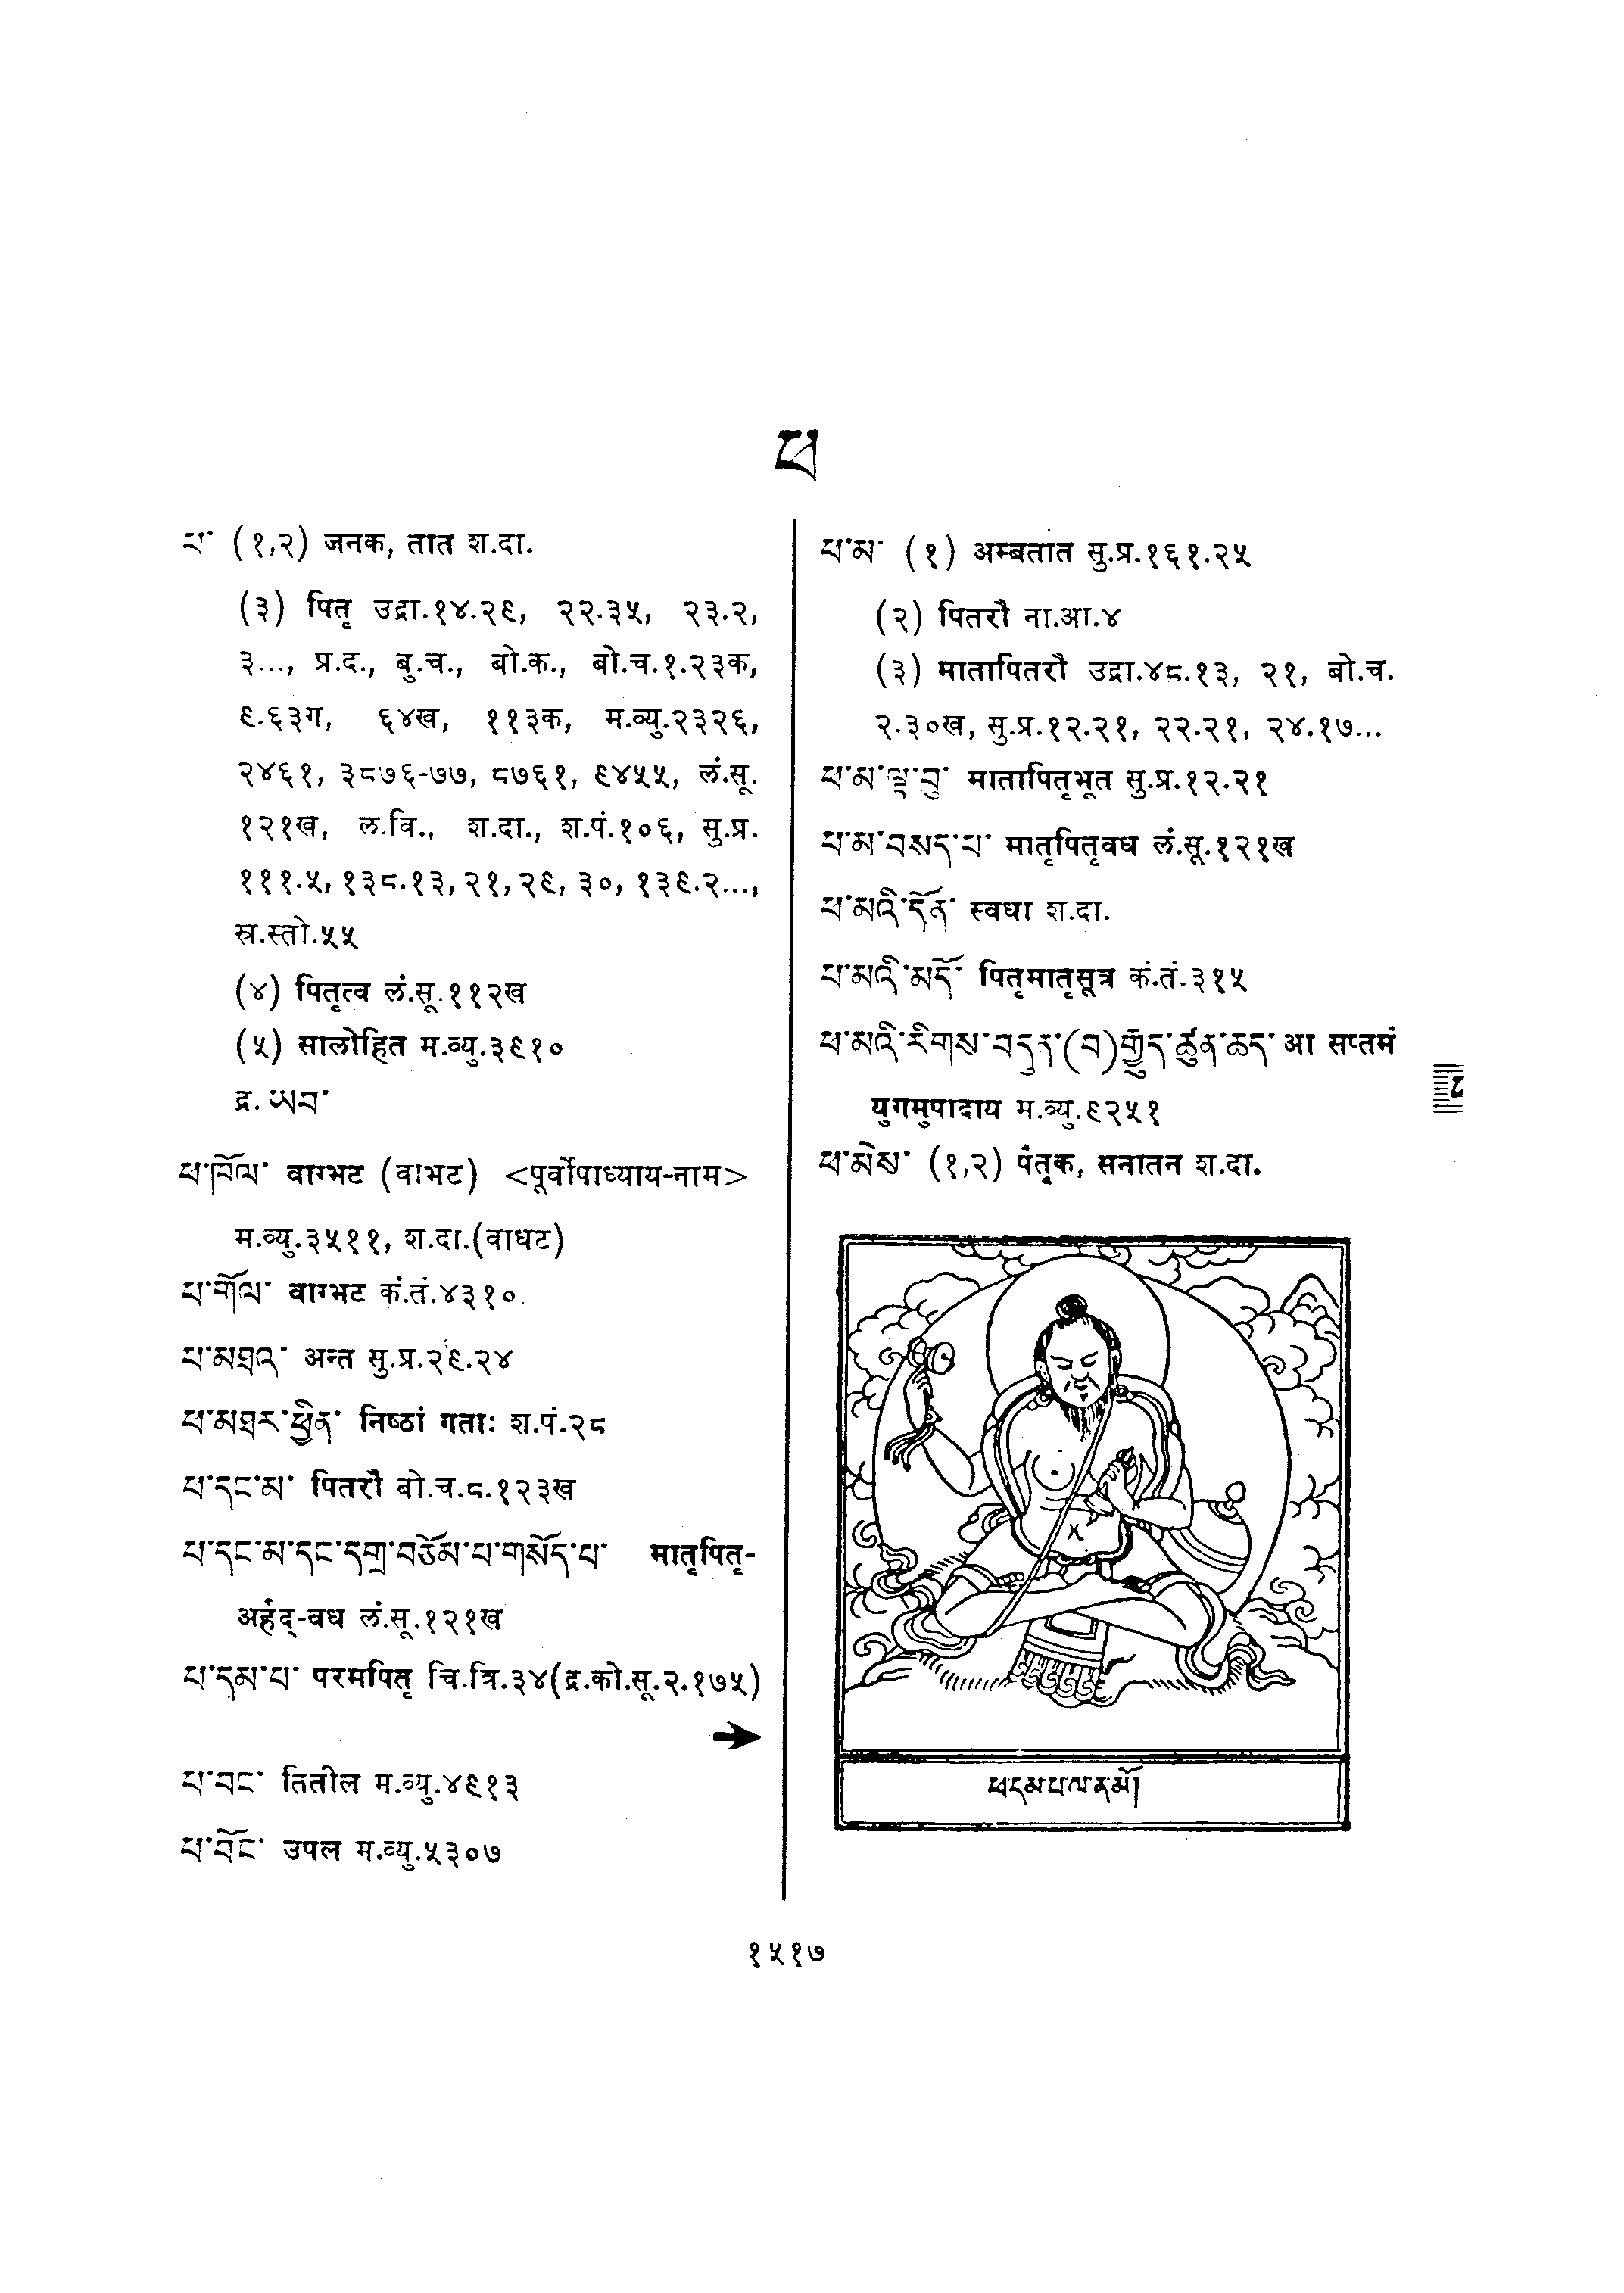 ཕ
ཕ་ (१,२) जनक, तात श.दा.
(३) पितृ उद्रा.१४.२९, २२.३५, २३.२,
३..., प्र.द., बु.च., बो.क., बो.च.१.२३क,
९.६३ग, ६४ख, ११३क, म.व्यु.२३२६,
२४६१, ३८७६-७७, ८७६१, ९४५५, लं.सू.
१२१ख, ल.वि., श.दा., श.पं.१०६, सु.प्र.
१११.५, १३८.१३, २१, २९, ३०, १३९.२...,
स्र.स्तो.५५
(४) पितृत्व लं.सू.११२ख
(५) सालोहित म.व्यु.३९१०
द्र. ཡབ་
ཕ་ཁོལ་ वाग्भट (वाभट) <पूर्वोपाध्याय-नाम>
म.व्यु.३५११, श.दा.(वाधट)
ཕ་གོལ་ वाग्भट कं.तं.४३१०
ཕ་མཐའ་ अन्त सु.प्र.२९.२४
ཕ་མཐར་ཕྱིན་ निष्ठां गताः श.पं.२८
ཕ་དང་མ་ पितरौ बो.च.८.१२३ख
ཕ་དང་མ་དང་དགྲ་བཅོམ་པ་གསོད་པ་ मातृपितृ-
अर्हद्-वध लं.सू.१२१ख
ཕ་དམ་པ་ परमपितृ चि.त्रि.३४(द्र.को.सू.२.१७५)
→
ཕ་བང་ तितील म.व्यु.४९१३
ཕ་བོང་ उपल म.व्यु.५३०७
ཕ་མ་ (१) अम्बतात सु.प्र.१६१.२५
(२) पितरौ ना.आ.४
(३) मातापितरौ उद्रा.४८.१३, २१, बो.च.
२.३०ख, सु.प्र.१२.२१, २२.२१, २४.१७...
ཕ་མ་ལྟ་བུ་ मातापितृभूत सु.प्र.१२.२१
ཕ་མ་བསད་པ་ मातृपितृवध लं.सू.१२१ख
ཕ་མའི་དོན་ स्वधा श.दा.
ཕ་མའི་མདོ་ पितृमातृसूत्र कं.तं.३१५
ཕ་མའི་རིགས་བདུན་(བ)རྒྱུད་ཚུན་ཆད་ आ सप्तमं
युगमुपादाय म.व्यु.९२५१
ཕ་མེས་ (१,२) पैतृक, सनातन श.दा.
ཕ་དམ་པ་ལ་ན་མོ།
१५१७